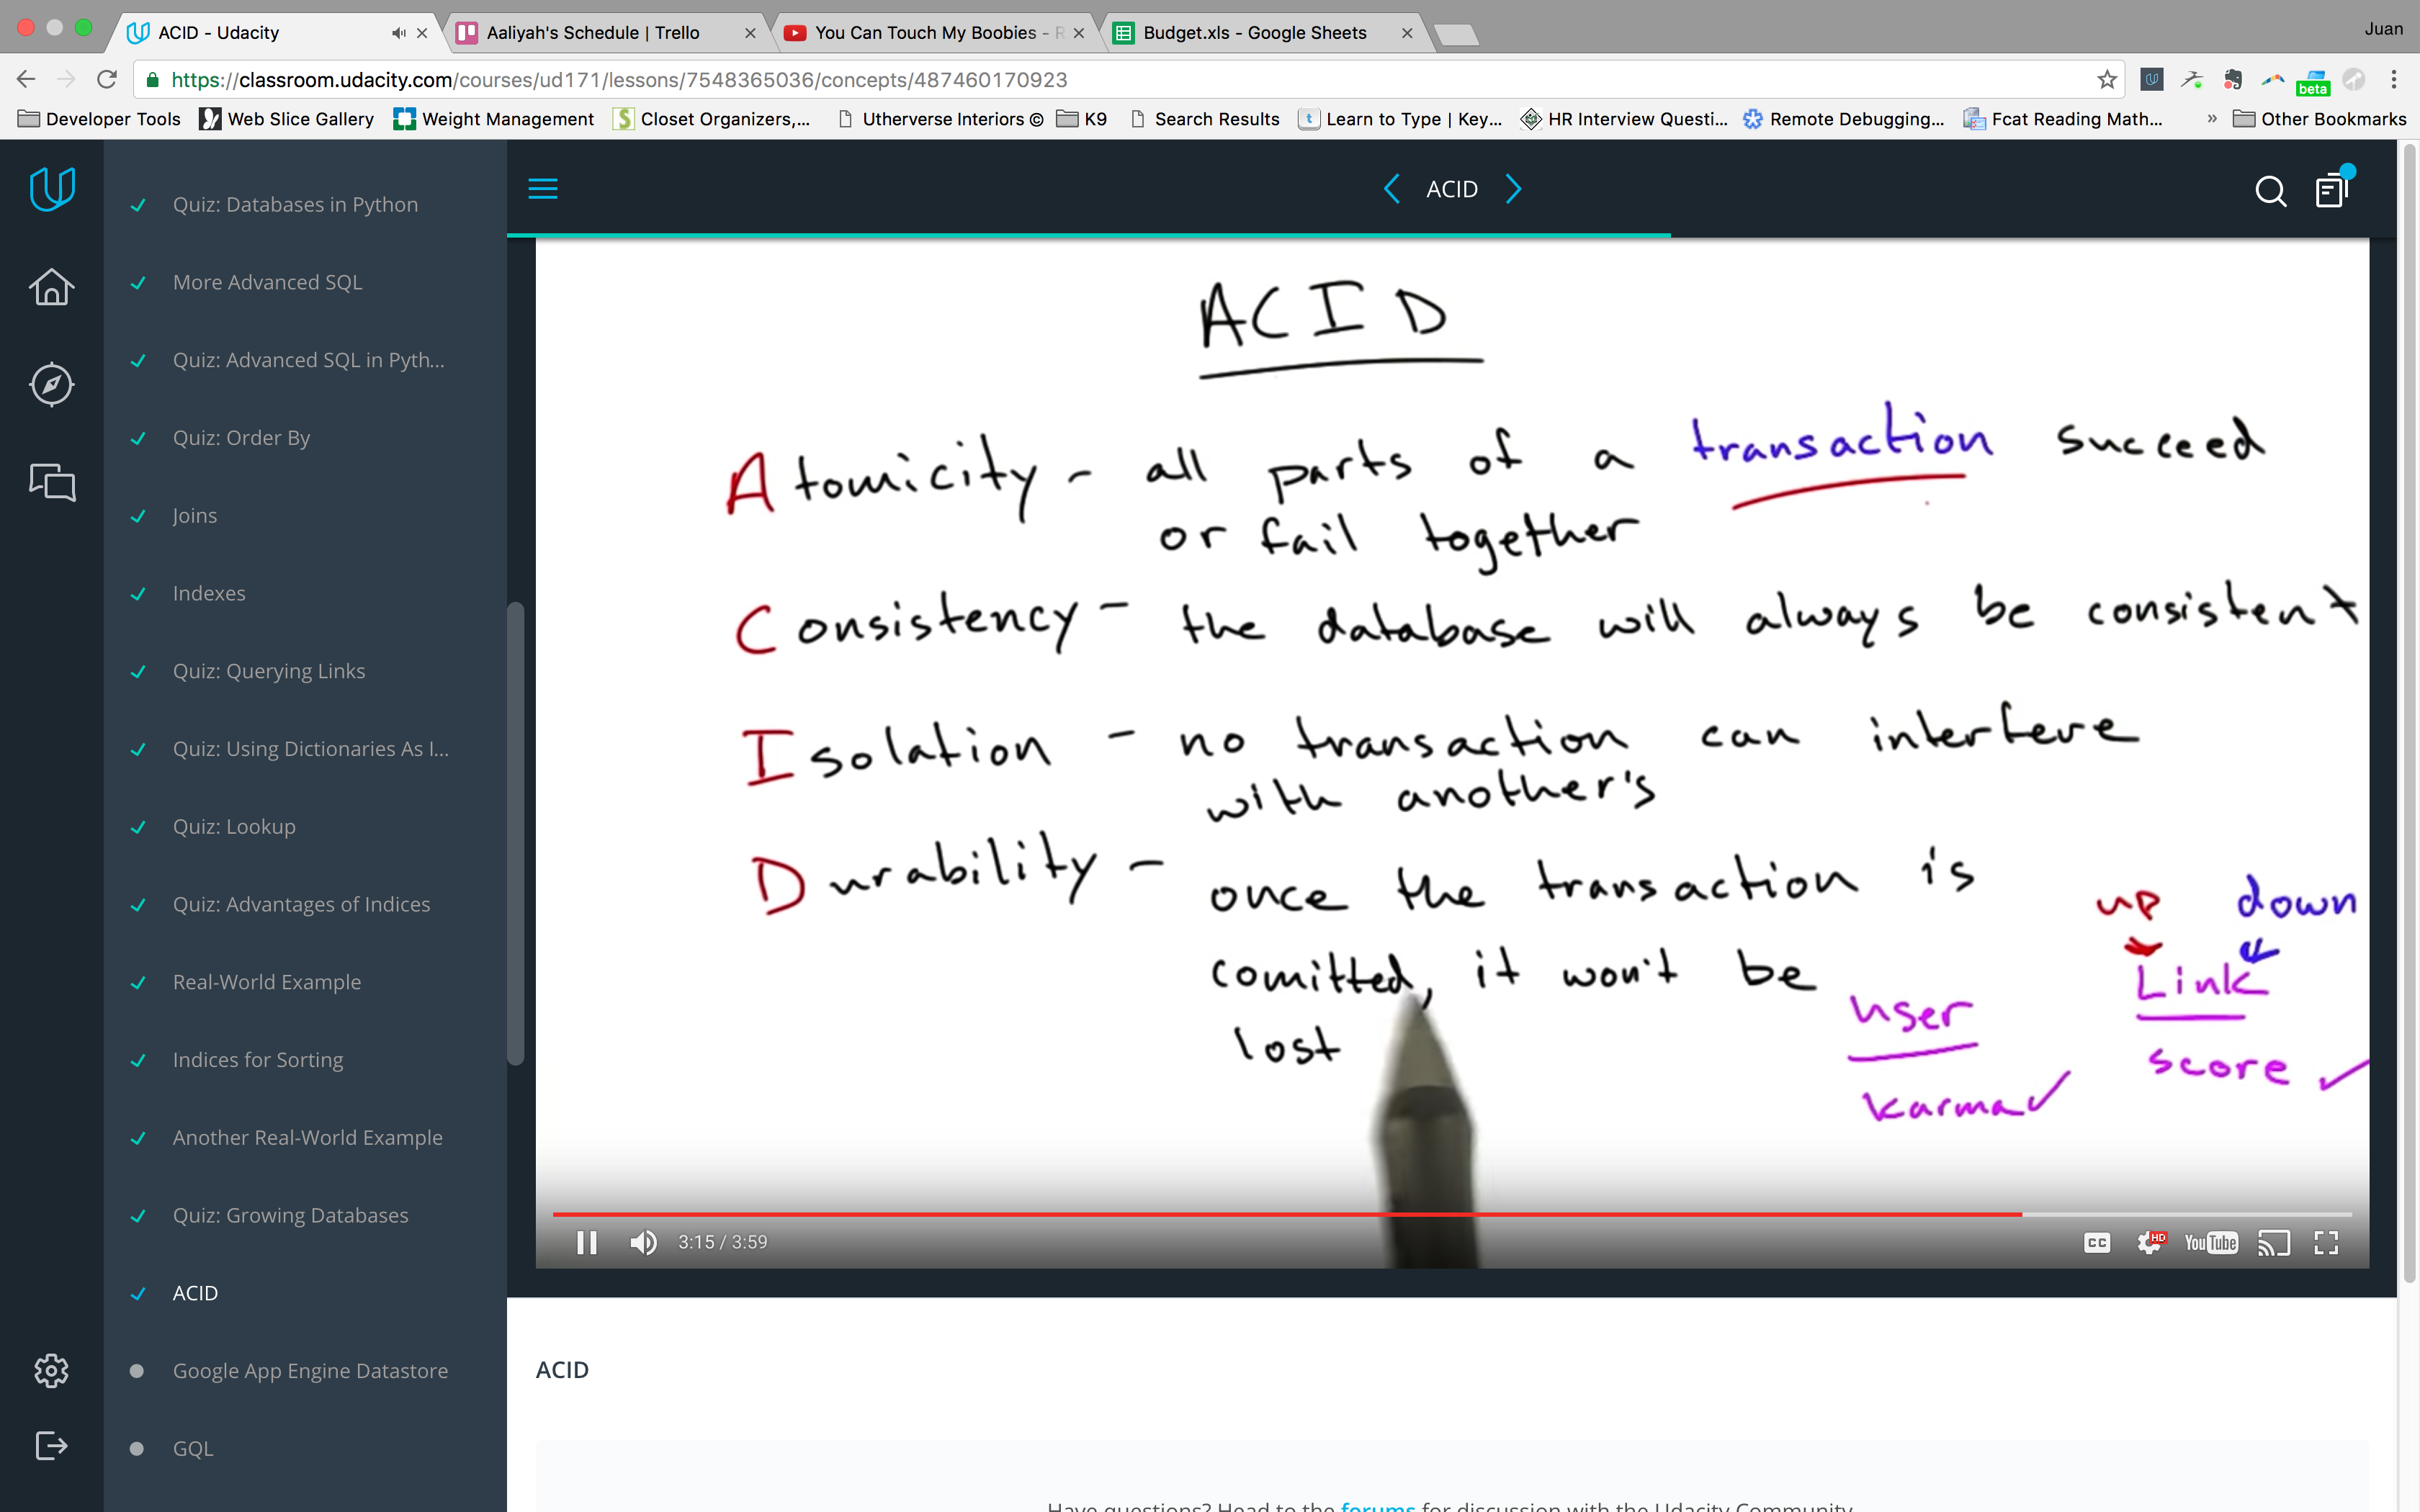 ACID - Udacity
Aaliyah's Schedule | Trello
You Can Touch My Boobies - R
Budget.xls - Google Sheets
Juan
https://classroom.udacity.com/courses/ud171/lessons/7548365036/concepts/487460170923
beta
Developer Tools
Web Slice Gallery
Weight Management
Closet Organizers,...
Utherverse Interiors ©
K9
Search Results
Learn to Type | Key...
HR Interview Questi...
Remote Debugging...
Fcat Reading Math...
» Other Bookmarks
ACID
Quiz: Databases in Python
More Advanced SQL
Quiz: Advanced SQL in Pyth...
Quiz: Order By
Joins
Indexes
Quiz: Querying Links
Quiz: Using Dictionaries As I...
Quiz: Lookup
Quiz: Advantages of Indices
Real-World Example
Indices for Sorting
Another Real-World Example
Quiz: Growing Databases
ACID
Google App Engine Datastore
GQL
ACID
Atomicity - all parts of a transaction succeed
or fail together
Consistency - the database will always be consistent
Isolation - no transaction can interfere
with another's
Durability - once the transaction is
comitted, it won't be
lost
up down
Link
score
user
karma
3:15 / 3:59
CC
HD
YouTube
ACID
Have questions? Head to the forums for discussion with the Udacity Community.